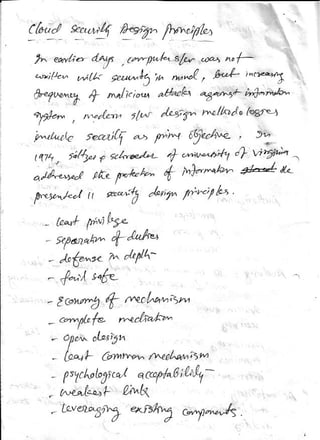 Cloud security Design Principles
In earlier days, computer s/w was not
written with security in mind, But increasing
frequency of malicious attacks against information
system, modern s/w design methodologies
include security as prime objective. In
1974, Saltzer & Schroeder of university of Virginia
addressed the protection of information
presented 11 security design principles.
- least privilege
- Separation of duties
- defense in depth
- fail safe
- Economy of mechanism
- complete mediation
- open design
- least common mechanism
- psychological acceptability
- weakest link
- Leveraging existing components.